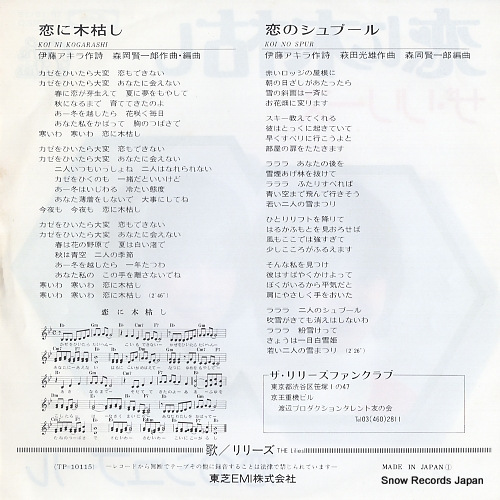 恋に木枯し
KOI NI KOGARASHI
伊藤アキラ作詩 森岡賢一郎作曲・編曲
カゼをひいたら大変 恋もできない
カゼをひいたら大変 あなたに会えない
春に恋が芽生えて 夏に夢をもやして
秋になるまで 育ててきたのよ
あー冬を越したら 花咲く毎日
あなた私をかばって 胸のつばさで
寒いわ 寒いわ 恋に木枯し
カゼをひいたら大変 恋もできない
カゼをひいたら大変 あなたに会えない
二人いつもいっしょね 二人はなれられない
カゼをひくのも 一緒だといいけど
あー冬はいじわる 冷たい態度
あなた薄着をしないで 大事にしてね
今夜も 今夜も 恋に木枯し
カゼをひいたら大変 恋もできない
カゼをひいたら大変 あなたに会えない
春は花の野原で 夏は白い渚で
秋は青空 二人の季節
あー冬を越したら 一年たつわ
あなた私の この手を離さないでね
寒いわ 寒いわ 恋に木枯し
寒いわ 寒いわ 恋に木枯し (2′46″)
恋に木枯し
恋のシュプール
KOI NO SPUR
伊藤アキラ作詩 萩田光雄作曲 森岡賢一郎編曲
赤いロッジの屋根に
朝の日ざしがあたったら
雪の斜面は一斉に
お花畑に変ります
スキー教えてくれる
彼はとっくに起きていて
早くすべりに行こうよと
部屋の扉をたたきます
ラララ あなたの後を
雪煙あげ林を抜けて
ラララ ふたりすべれば
青い空まで飛んで行きそう
若い二人の雪まつり
ひとりリフトを降りて
はるかふもとを見おろせば
風もここでは強すぎて
少しこころがふるえます
そんな私を見つけ
彼はすばやくかけよって
ぼくがいるから平気だと
肩にやさしく手をおいた
ラララ 二人のシュプール
吹雪がきても消えはしないわ
ラララ 粉雪けって
きょうは一日白雪姫
若い二人の雪まつり (2′26″)
ザ・リリーズファンクラブ
東京都渋谷区笹塚1の47
京王重機ビル
渡辺プロダクションタレント友の会
Tel03(460)2811
歌／リリーズ THE Lilies
(TP-10115) ーレコードから無断でテープその他に録音することは法律で禁じられていますー MADE IN JAPAN①
東芝EMI株式会社
Snow Records Japan